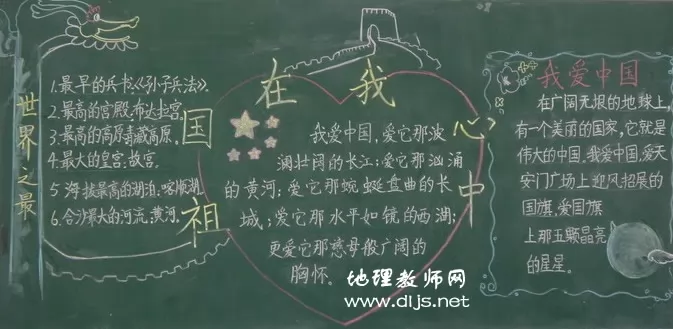 世界之最
1.最早的兵书:《孙子兵法》.
2.最高的宫殿:布达拉宫.
3.最高的高原:青藏高原.
4.最大的皇宫:故宫.
5.海拔最高的湖泊:喀顺湖.
6.含沙最大的河流:黄河.
祖国在我心中
我爱中国,爱它那波
澜壮阔的长江;爱它那汹涌
的黄河;爱它那蜿蜒盘曲的长
城;爱它那水平如镜的西湖;
更爱它那慈母般广阔的
胸怀.
我爱中国
在广阔无垠的地球上,
有一个美丽的国家,它就是
伟大的中国.我爱中国,爱天
安门广场上迎风招展的
国旗,爱国旗
上那五颗晶亮
的星星。
地理教师网
www.dljs.net